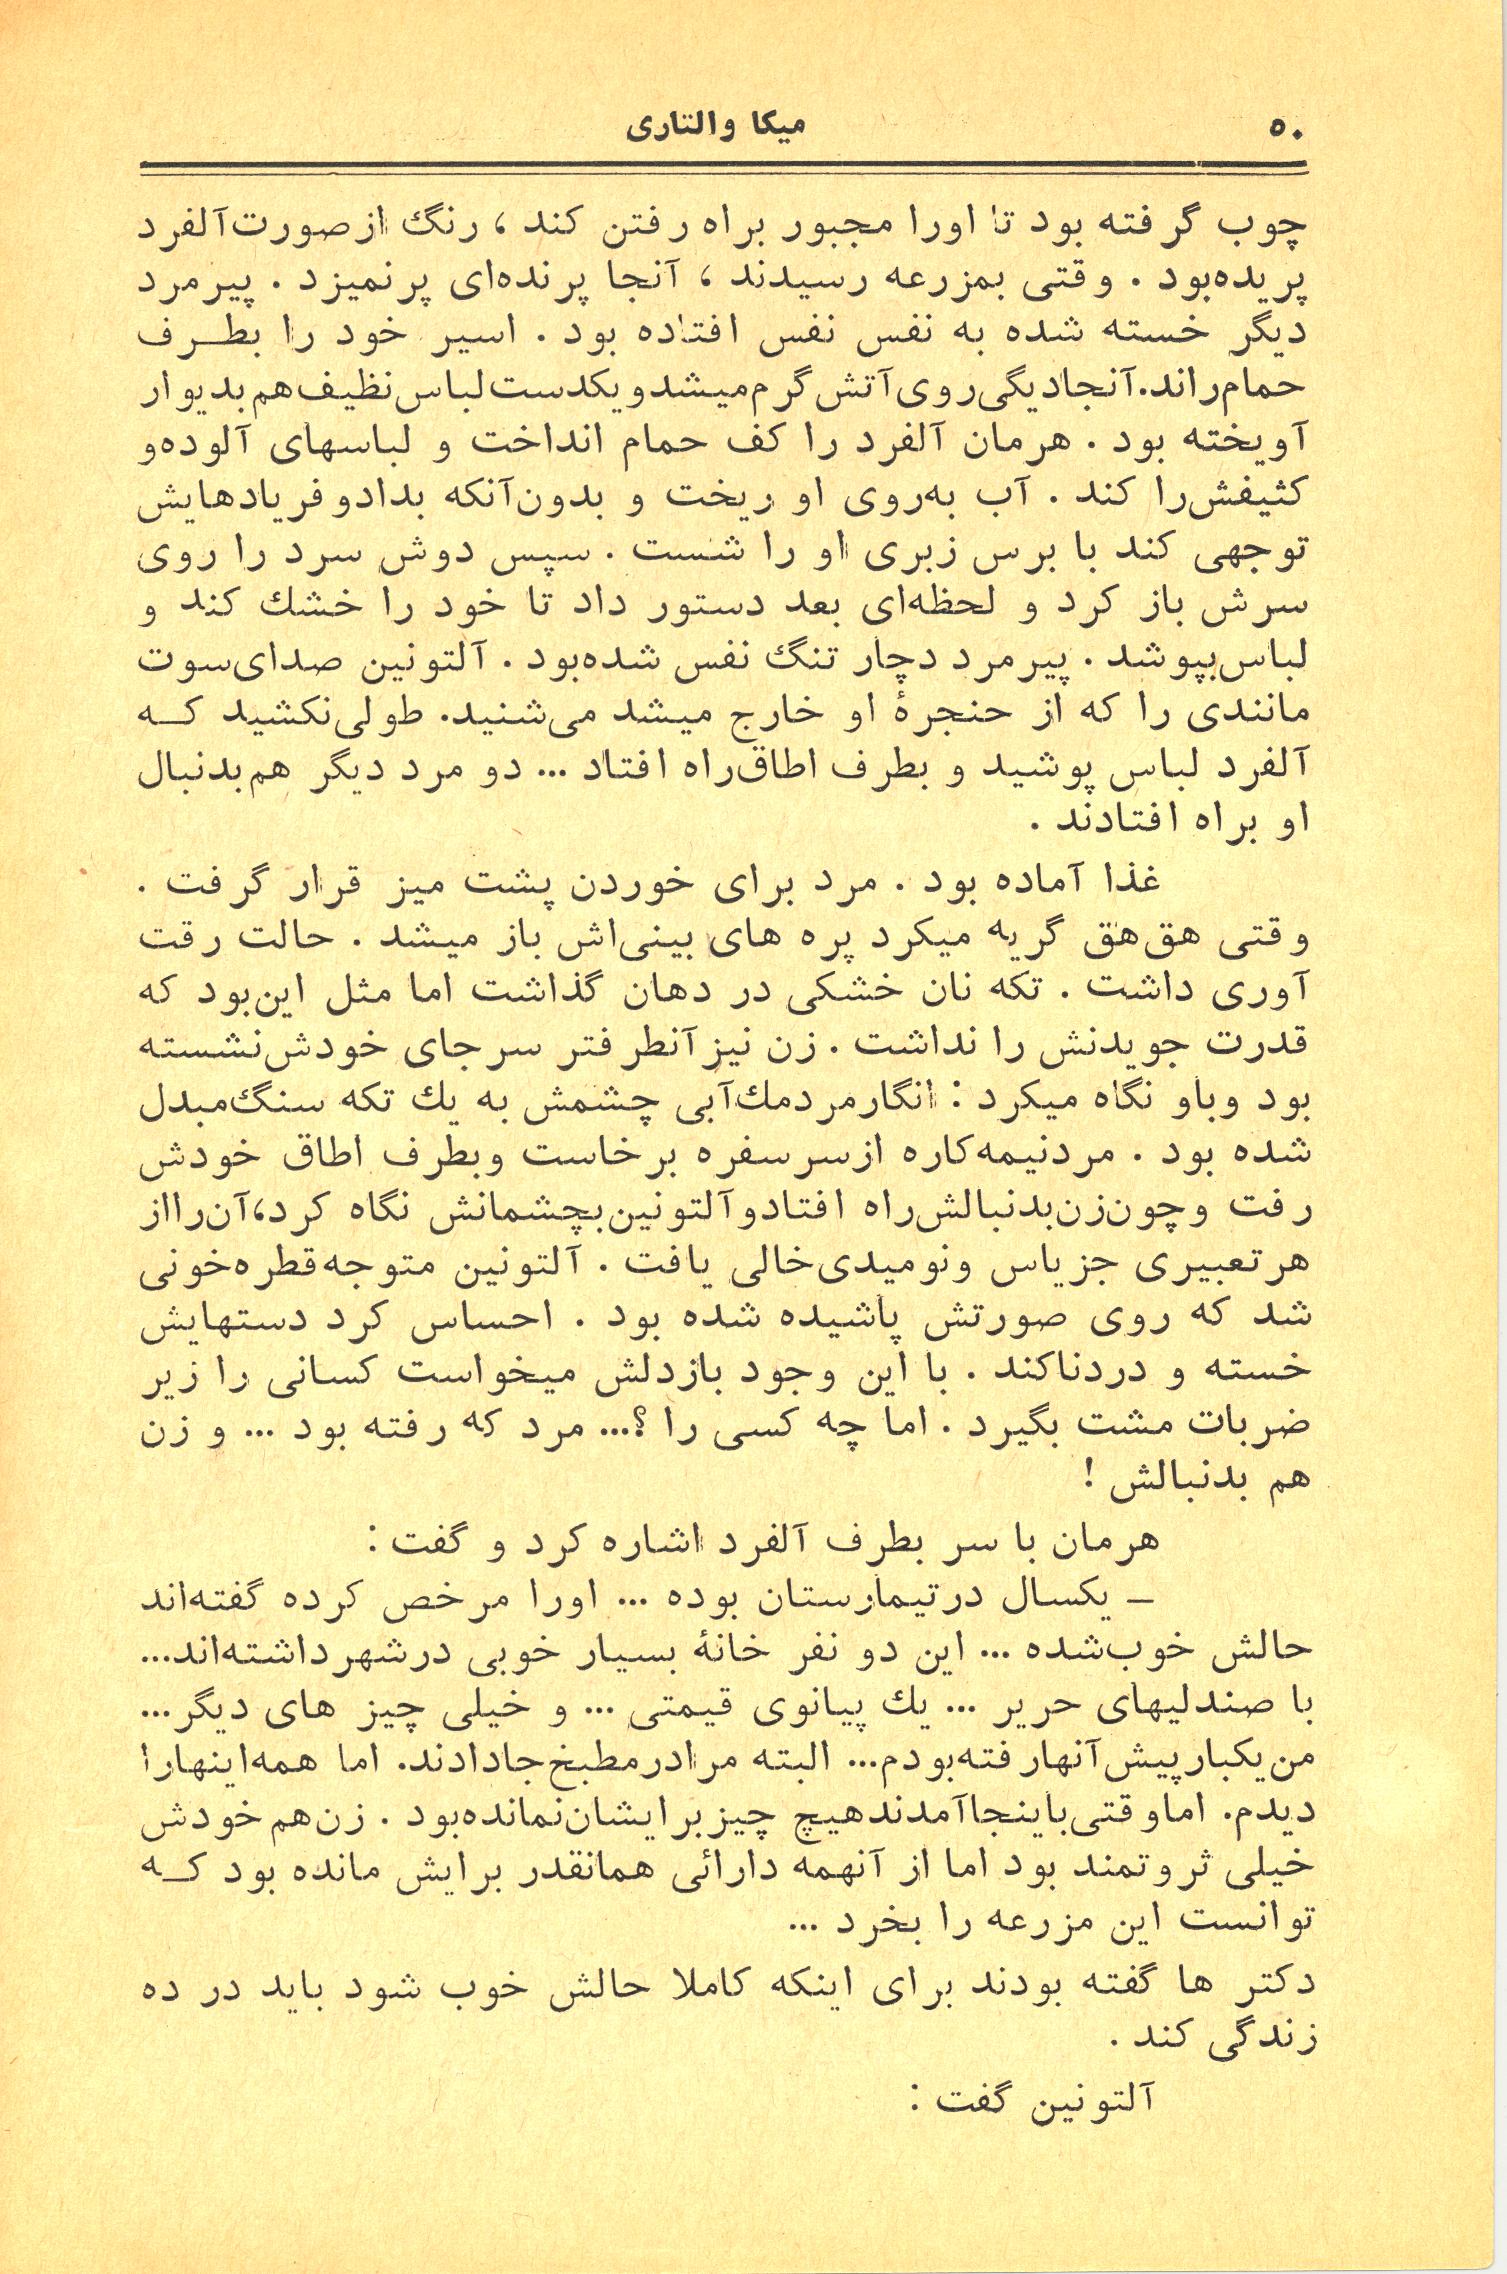 ۵۰
میکا والتاری
چوب گرفته بود تا اورا مجبور براه رفتن کند ، رنگ ازصورت‌آلفرد
پریده‌بود . وقتی بمزرعه رسیدند ، آنجا پرنده‌ای پرنمیزد . پیرمرد
دیگر خسته شده به نفس نفس افتاده بود . اسیر خود را بطرف
حمام‌راند.آنجادیگی‌روی‌آتش‌گرم‌میشدویکدست‌لباس‌نظیف‌هم‌بدیوار
آویخته بود . هرمان آلفرد را کف حمام انداخت و لباسهای آلوده‌و
کثیفش‌را کند . آب به‌روی او ریخت و بدون‌آنکه بدادوفریادهایش
توجهی کند با برس زبری او را شست . سپس دوش سرد را روی
سرش باز کرد و لحظه‌ای بعد دستور داد تا خود را خشك کند و
لباس‌بپوشد . پیرمرد دچار تنگ نفس شده‌بود . آلتونین صدای‌سوت
مانندی را که از حنجرهٔ او خارج میشد می‌شنید. طولی‌نکشید که
آلفرد لباس پوشید و بطرف اطاق‌راه افتاد ... دو مرد دیگر هم‌بدنبال
او براه افتادند .
غذا آماده بود . مرد برای خوردن پشت میز قرار گرفت .
وقتی هق‌هق گریه میکرد پره های بینی‌اش باز میشد . حالت رقت
آوری داشت . تکه نان خشکی در دهان گذاشت اما مثل این‌بود که
قدرت جویدنش را نداشت . زن نیزآنطرفتر سرجای خودش‌نشسته
بود وباو نگاه میکرد : انگارمردمك‌آبی چشمش به یك تکه سنگ‌مبدل
شده بود . مردنیمه‌کاره ازسرسفره برخاست وبطرف اطاق خودش
رفت وچون‌زن‌بدنبالش‌راه افتادوآلتونین‌بچشمانش نگاه کرد،آن‌رااز
هرتعبیری جزیاس ونومیدی‌خالی یافت . آلتونین متوجه‌قطره‌خونی
شد که روی صورتش پاشیده شده بود . احساس کرد دستهایش
خسته و دردناکند . با این وجود بازدلش میخواست کسانی را زیر
ضربات مشت بگیرد . اما چه کسی را ؟... مرد که رفته بود ... و زن
هم بدنبالش !
هرمان با سر بطرف آلفرد اشاره کرد و گفت :
ـ یکسال درتیمارستان بوده ... اورا مرخص کرده گفته‌اند
حالش خوب‌شده ... این دو نفر خانهٔ بسیار خوبی درشهرداشته‌اند...
با صندلیهای حریر ... یك پیانوی قیمتی ... و خیلی چیز های دیگر...
من‌یکبارپیش‌آنهارفته‌بودم... البته مرادرمطبخ‌جادادند. اما همه‌اینهارا
دیدم. اماوقتی‌باینجاآمدندهیچ چیزبرایشان‌نمانده‌بود . زن‌هم‌خودش
خیلی ثروتمند بود اما از آنهمه دارائی همانقدر برایش مانده بود که
توانست این مزرعه را بخرد ...
دکتر ها گفته بودند برای اینکه کاملا حالش خوب شود باید در ده
زندگی کند .
آلتونین گفت :